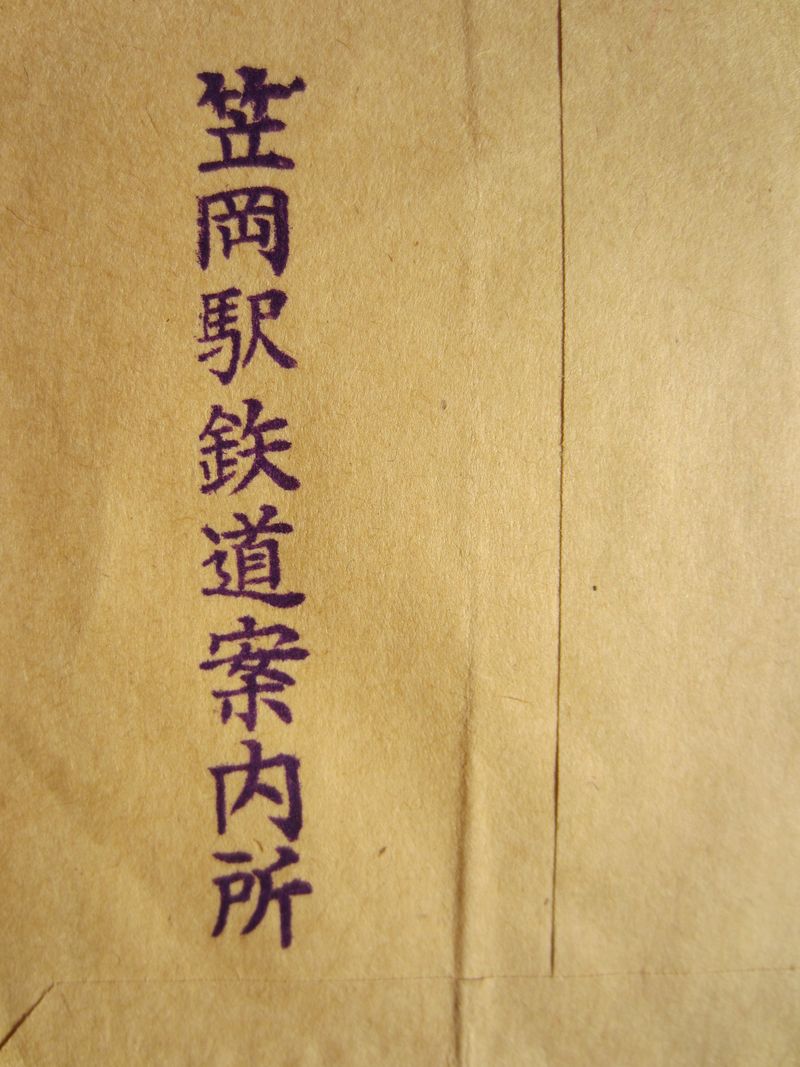 笠岡駅鉄道案内所